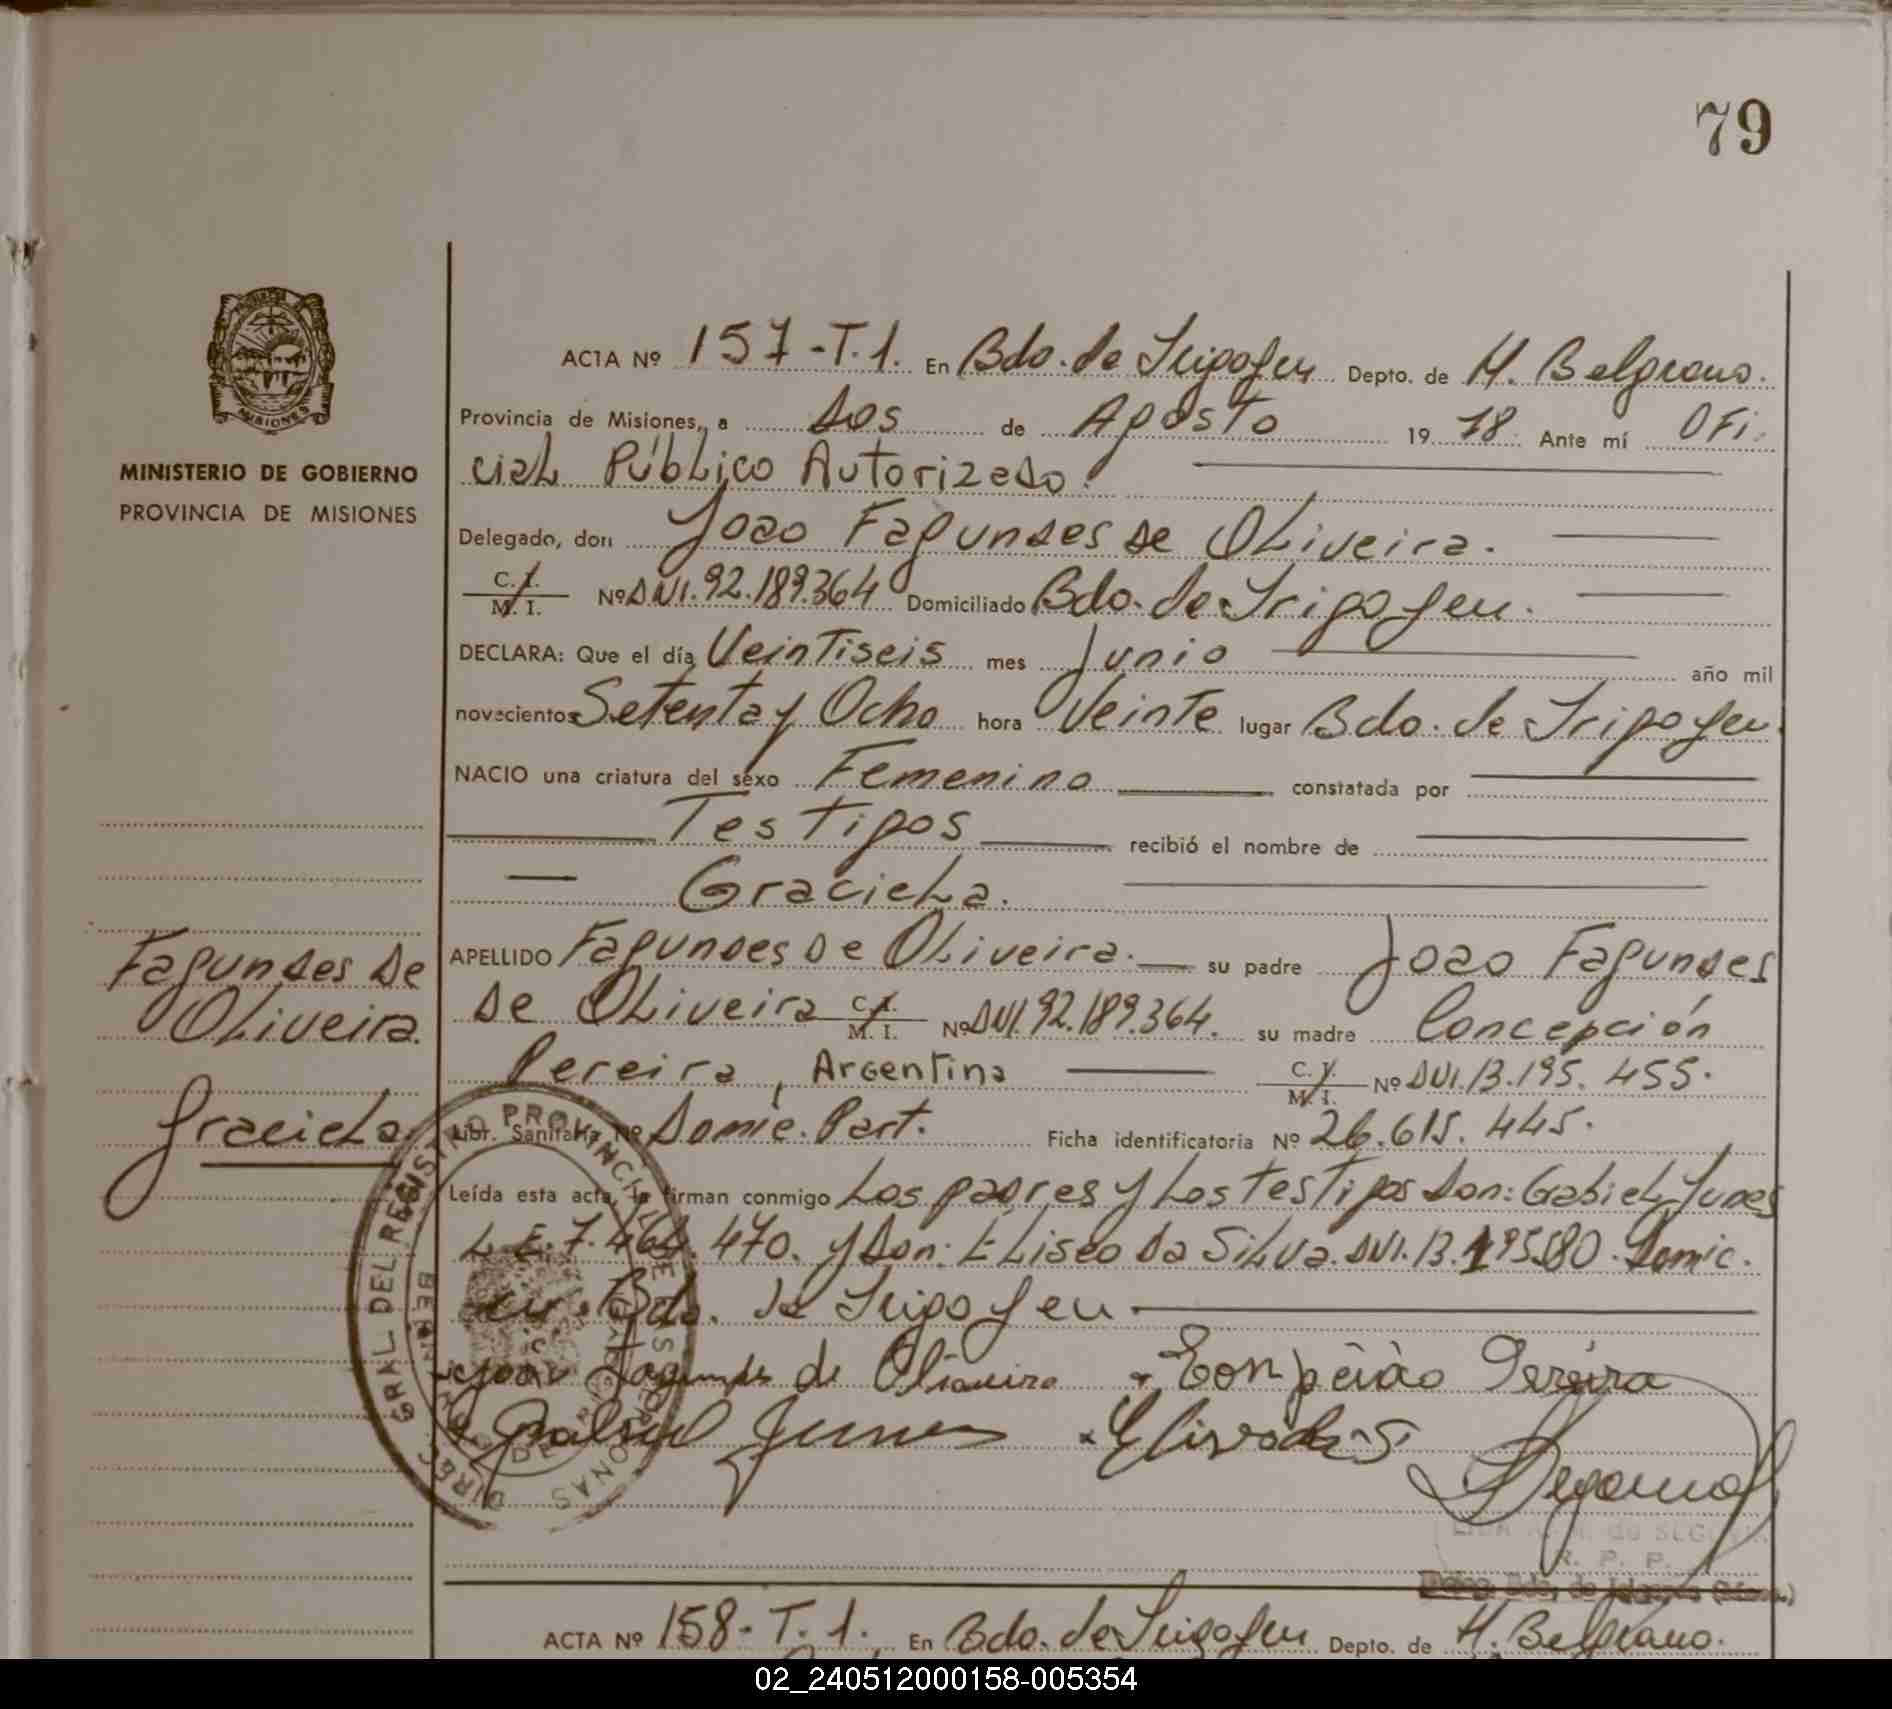 79
MINISTERIO DE GOBIERNO
PROVINCIA DE MISIONES
ACTA Nº 157-T.1. En Bdo. de Irigoyen Depto. de M. Belgrano.
Provincia de Misiones, a Dos de Agosto 19 78 Ante mí Ofi-
cial Público Autorizado.
Delegado, don Joao Fagundes de Oliveira.
C. I. M. I. Nº DNI. 92.189.364 Domiciliado Bdo. de Irigoyen.
DECLARA: Que el día Veintiseis mes Junio año mil
novecientos Setenta y Ocho hora Veinte lugar Bdo. de Irigoyen.
NACIO una criatura del sexo Femenino constatada por
Testigos recibió el nombre de
Graciela.
APELLIDO Fagundes De Oliveira. su padre Joao Fagundes
De Oliveira C. I. M. I. Nº DNI. 92.189.364. su madre Concepción
Pereira, Argentina C. I. M. I. Nº DNI. 13.195.455.
Libr. Sanitaria Nº Domic. Part. Ficha identificatoria Nº 26.615.445.
Leída esta acta, la firman conmigo Los padres y Los testigos Don: Gabiel Yunes
L.E. 7.464.470. y Don: Eliseo Da Silva. DNI. 13.195.580. Domic.
en Bdo. de Irigoyen
Fagundes De
Oliveira.
Graciela
Joao Fagundes de Oliveira Conpeiào Pereira
Gabriel Yunes
DIREC. GRAL DEL REGISTRO PROVINCIAL DE LAS PERSONAS
R. P. P.
ACTA Nº 158-T.1. En Bdo. de Irigoyen Depto. de M. Belgrano.
02_240512000158-005354